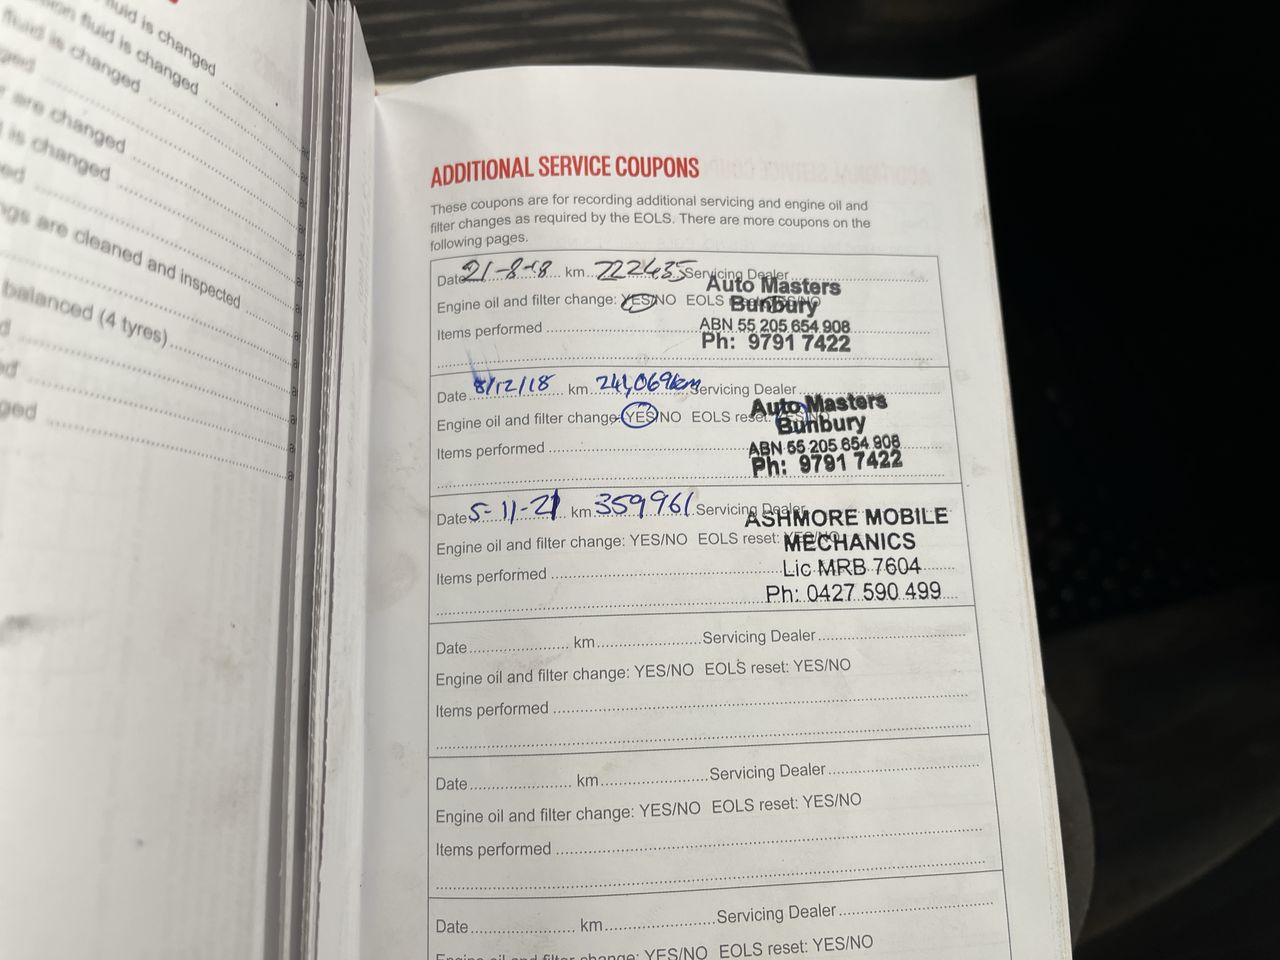 fluid is changed
ion fluid is changed
fluid is changed
ged
r are changed
is changed
ed
ngs are cleaned and inspected
balanced (4 tyres)
d
ed
ged
ADDITIONAL SERVICE COUPONS
These coupons are for recording additional servicing and engine oil and
filter changes as required by the EOLS. There are more coupons on the
following pages.
Date 21-8-18 km 222435 Servicing Dealer
Auto Masters
Engine oil and filter change: YES/NO EOLS
Bunbury
Items performed
ABN 55 205 654 908
Ph: 9791 7422
Date 8/12/18 km 241,069km Servicing Dealer
Auto Masters
Engine oil and filter change: YES/NO EOLS reset:
Bunbury
Items performed
ABN 55 205 654 908
Ph: 9791 7422
Date 5-11-21 km 359961 Servicing Dealer
ASHMORE MOBILE
Engine oil and filter change: YES/NO EOLS reset:
MECHANICS
Items performed
Lic MRB 7604
Ph: 0427 590 499
Date km Servicing Dealer
Engine oil and filter change: YES/NO EOLS reset: YES/NO
Items performed
Date km Servicing Dealer
Engine oil and filter change: YES/NO EOLS reset: YES/NO
Items performed
Date km Servicing Dealer
Engine oil and filter change: YES/NO EOLS reset: YES/NO